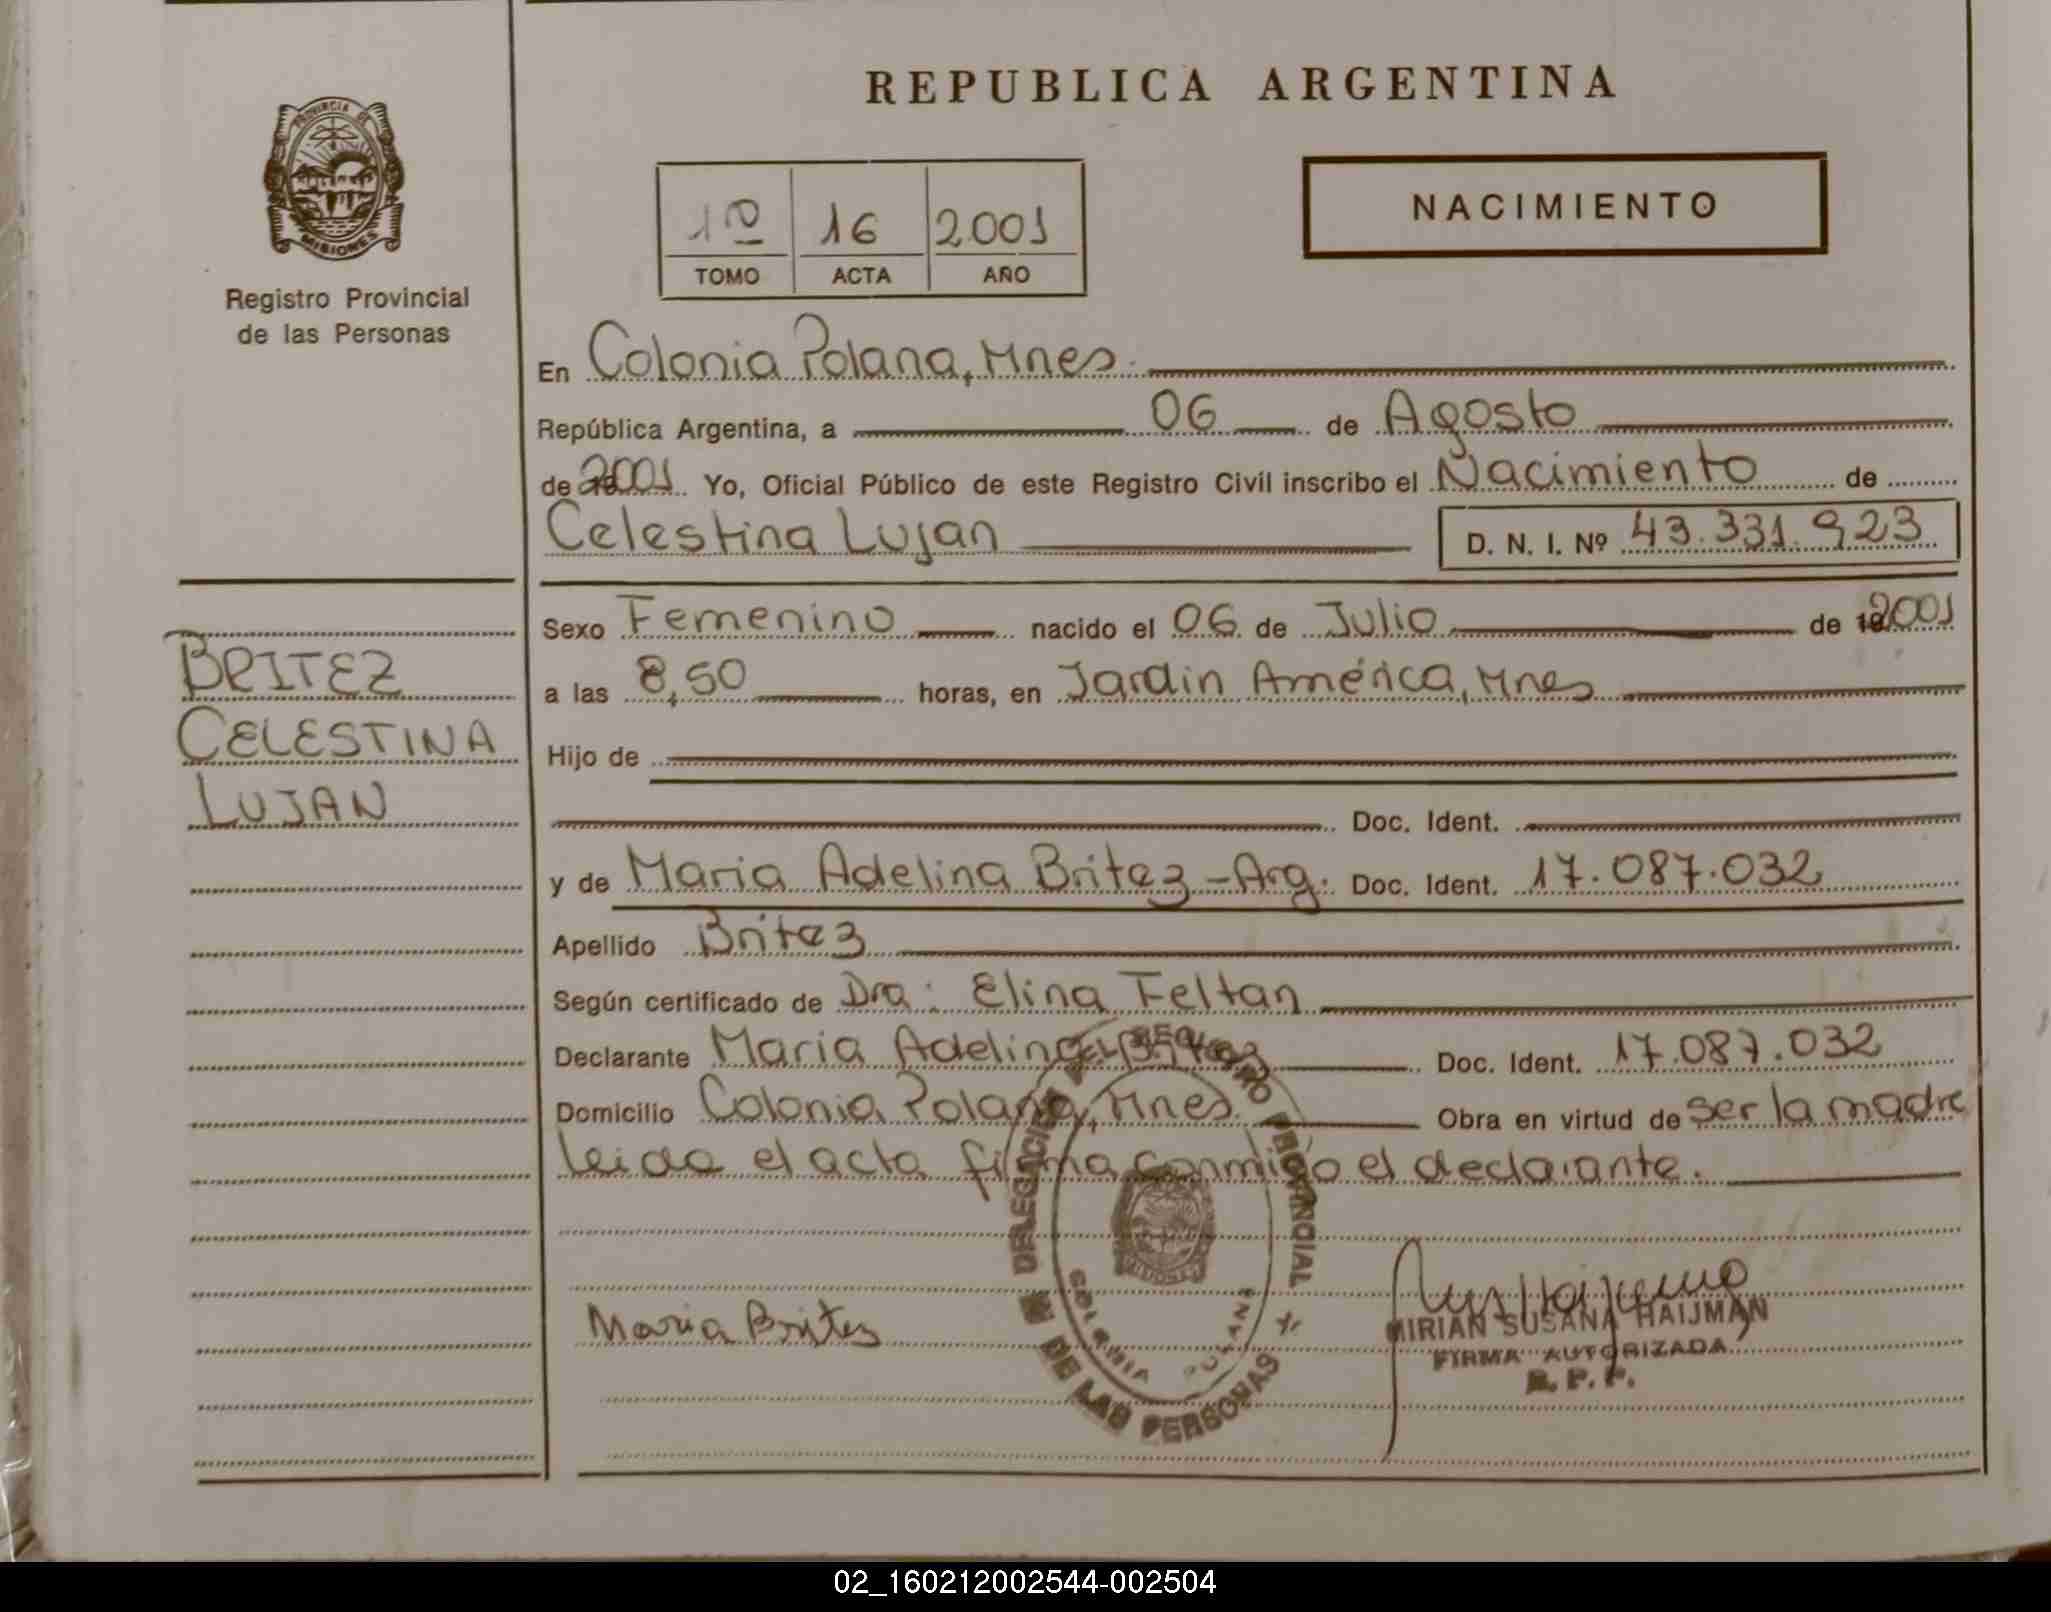 REPUBLICA ARGENTINA
PROVINCIA DE
MISIONES
Registro Provincial
de las Personas
1º 16 2001
TOMO ACTA AÑO
NACIMIENTO
En Colonia Polana, Mnes.
República Argentina, a 06 de Agosto
de 2001 Yo, Oficial Público de este Registro Civil inscribo el Nacimiento de
Celestina Lujan D. N. I. Nº 43.331.923
Sexo Femenino nacido el 06 de Julio de 2001
a las 8,50 horas, en Jardin América, Mnes
BRITEZ
CELESTINA
LUJAN
Hijo de
Doc. Ident.
y de Maria Adelina Britez - Arg. Doc. Ident. 17.087.032
Apellido Britez
Según certificado de Dra: Elina Feltan
Declarante Maria Adelina Britez Doc. Ident. 17.087.032
Domicilio Colonia Polana, Mnes. Obra en virtud de ser la madre
leida el acta firma conmigo el declarante.
DELEGACION DEL REGISTRO PROVINCIAL
DE LAS PERSONAS
MISIONES
COLONIA POLANA
Maria Brites
MIRIAN SUSANA HAIJMAN
FIRMA AUTORIZADA
R. P. P.
02_160212002544-002504